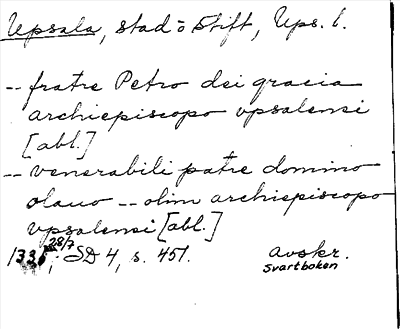 Upsala, stad o Stift, Ups. l.
-- fratre Petro dei gracia
archiepiscopo vpsalensi
[abl.]
-- venerabili patre domino
olauo -- olim archiepiscopo
vpsalensi [abl.]
28/7
1335, SD 4, s. 451. avskr.
Svartboken